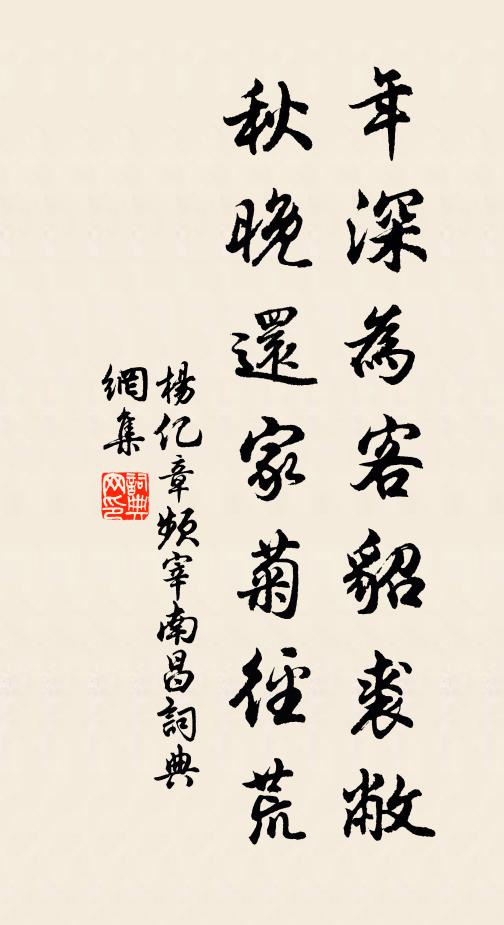 年深為客貂裘敝
秋晚還家菊徑荒
楊亿章頻宰南昌詞典
網集
詞典
网印